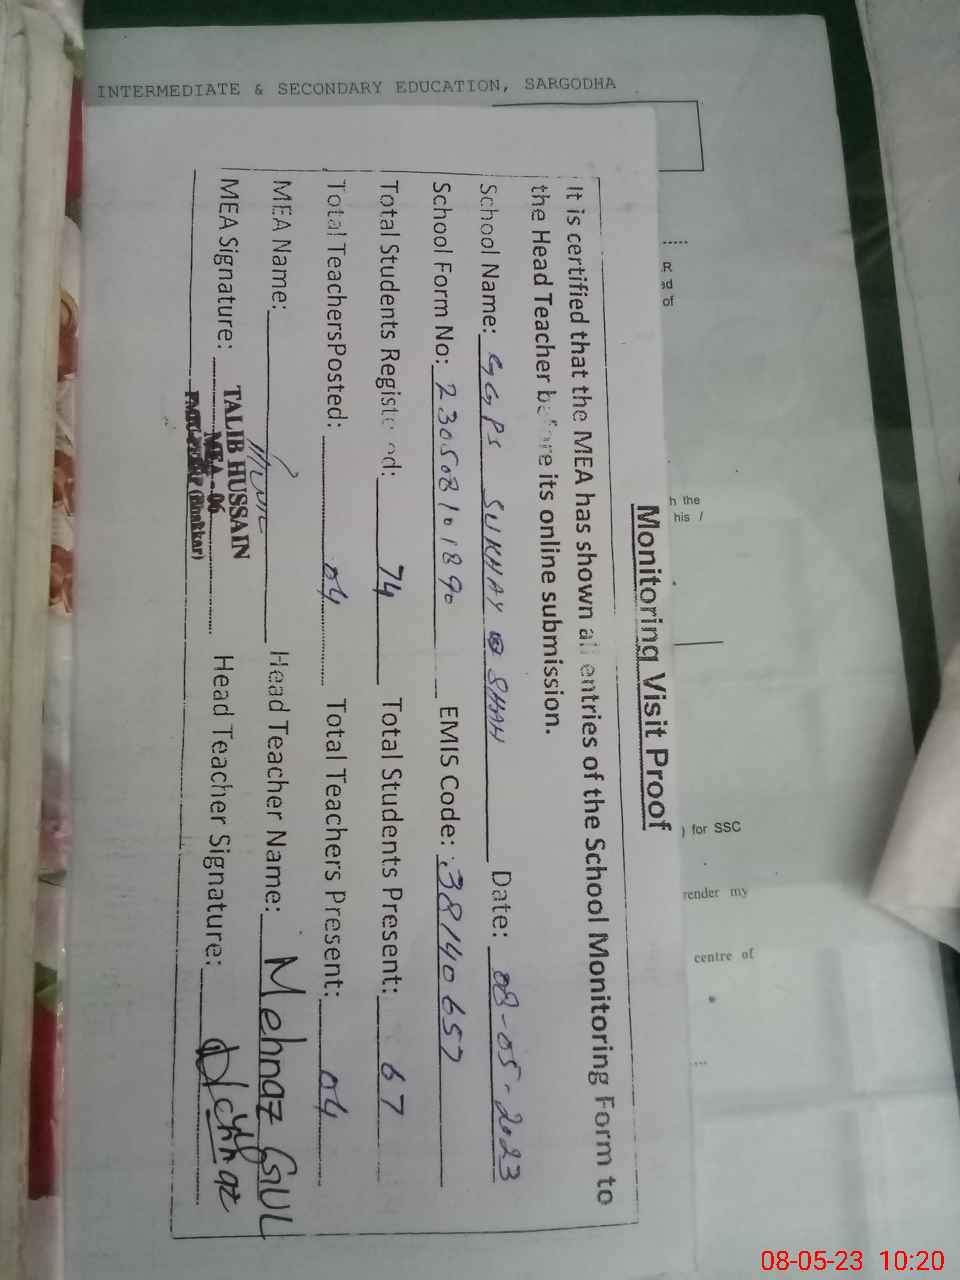 INTERMEDIATE & SECONDARY EDUCATION, SARGODHA
Monitoring Visit Proof
It is certified that the MEA has shown all entries of the School Monitoring Form to
the Head Teacher before its online submission.
School Name: GGPS SUKHAY SHAH Date: 08-05-2023
School Form No: 230508101890 EMIS Code: 38140657
Total Students Registered: 74 Total Students Present: 67
Total TeachersPosted: 04 Total Teachers Present: 04
MEA Name: Head Teacher Name: Mehnaz GUL
MEA Signature: Head Teacher Signature: Mehnaz
TALIB HUSSAIN
MEA - 06
(Bhakkar)
R
ad
of
h the
his /
) for SSC
render my
centre of
08-05-23 10:20